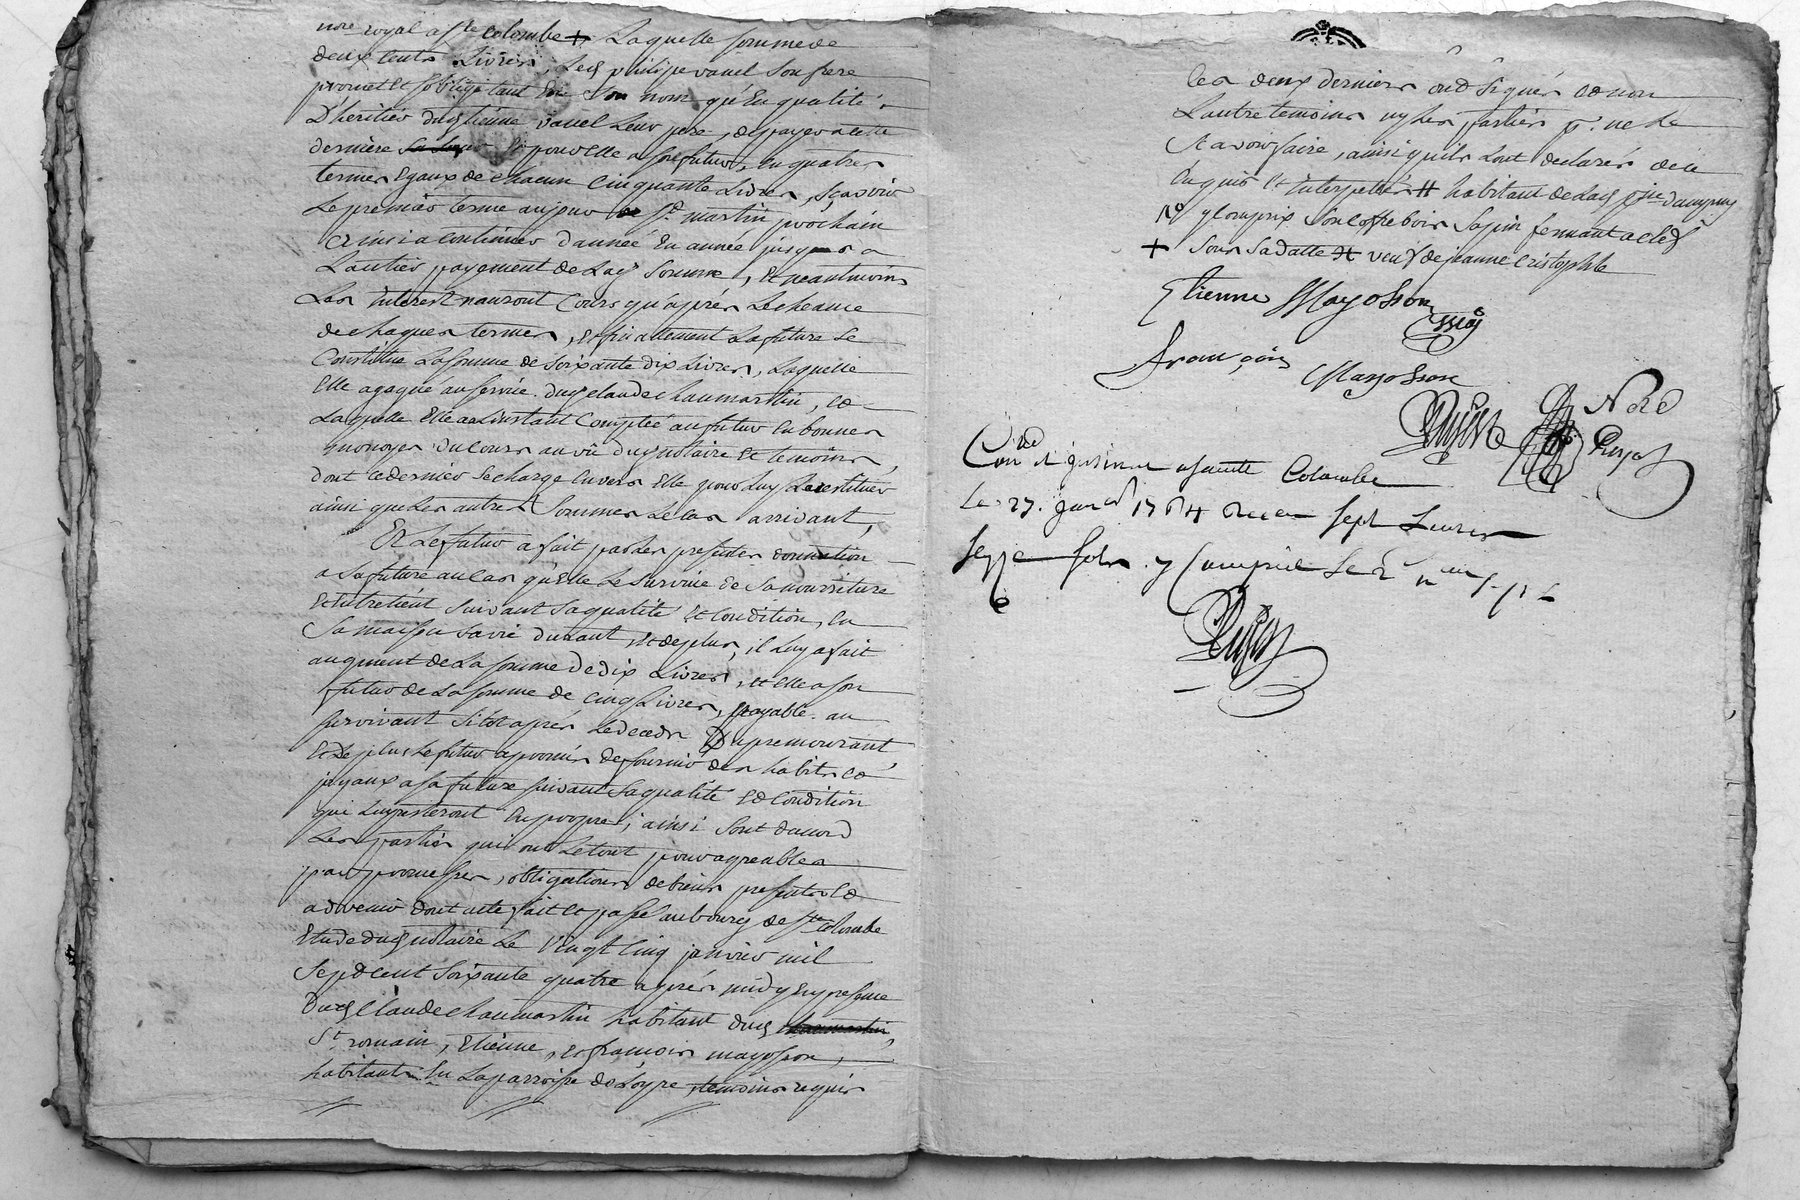 nore royal a Ste Colombe + Laquelle somme de
deux cents Livres, Led philipe vanel son frere
promet et s'oblige tant En son nom qu'En qualité
D'heritier dud etienne vanel Leur pere, de payer a cette
derniere et pour elle a son futur, En quatre
termes Egaux de chacun Cinquante Livres, scavoir
Le premier terme au jour de St martin prochain
Et insi a continuer d'année En année jusques a
L'antier payement de Lad somme, Et neantmoins
Les interest n'auront Cours qu'après Lecheance
de chaques termes, et finalement La future se
Constitue La somme de soixante dix Livres, Laquelle
Elle a gagné au service dud claude chaumartin, et
Laquelle Elle a a L'instant Comptée au futur En bonnes
monoyes du cours au vû dud notaire Et temoins,
dont ce dernier se charge Envers Elle pour Luy Restituer
ainsi que Les autres sommes Le cas arrivant,
Et Le futur a fait par Les presentes donnation
a sa future au cas qu'Elle Le survive de sa nourriture
Et Entretient suivant sa qualité Et Condition, En
sa maison sa vie durant, et de plus, il Luy a fait
augment de La somme de dix Livres, et Elle a son
futur de La somme de Cinq Livres, payable au
survivant sitot apres Le deceds Du premourant
Et de plus Le futur a promis de fournir des habits et
joyaux a sa future suivant sa qualité Et Condition
qui Luy resteront En propre; ainsi sont d'accord
Les parties qui ont Le tout pour agreable
par promesses, obligations de biens presents et
advenir dont acte fait et passé au bourg de Ste Colombe
Etude dud notaire Le Vingt Cinq janvier mil
sept cent soixante quatre après midy En presence
Dud Claude chaumartin habitant dud
St romain, Etienne, et françois mayosson,
habitants En La parroisse de Loyre temoins requis
Les deux derniers ont signés et non
L'autre temoins ny Les parties pr ne Le
scavoir faire, ainsi qu'ils Lont declarés de ce
Enquis Et interpellés # habitant de Lad
y compris son coffre bois sapin fermant a clef
+ sous sa datte # veuf de jeanne cristophle
Etienne Mayosson
françois Mayosson
Con a sainte Colombe
Le 27. janv 1764 Receu sept Livres
seize sols y Compris